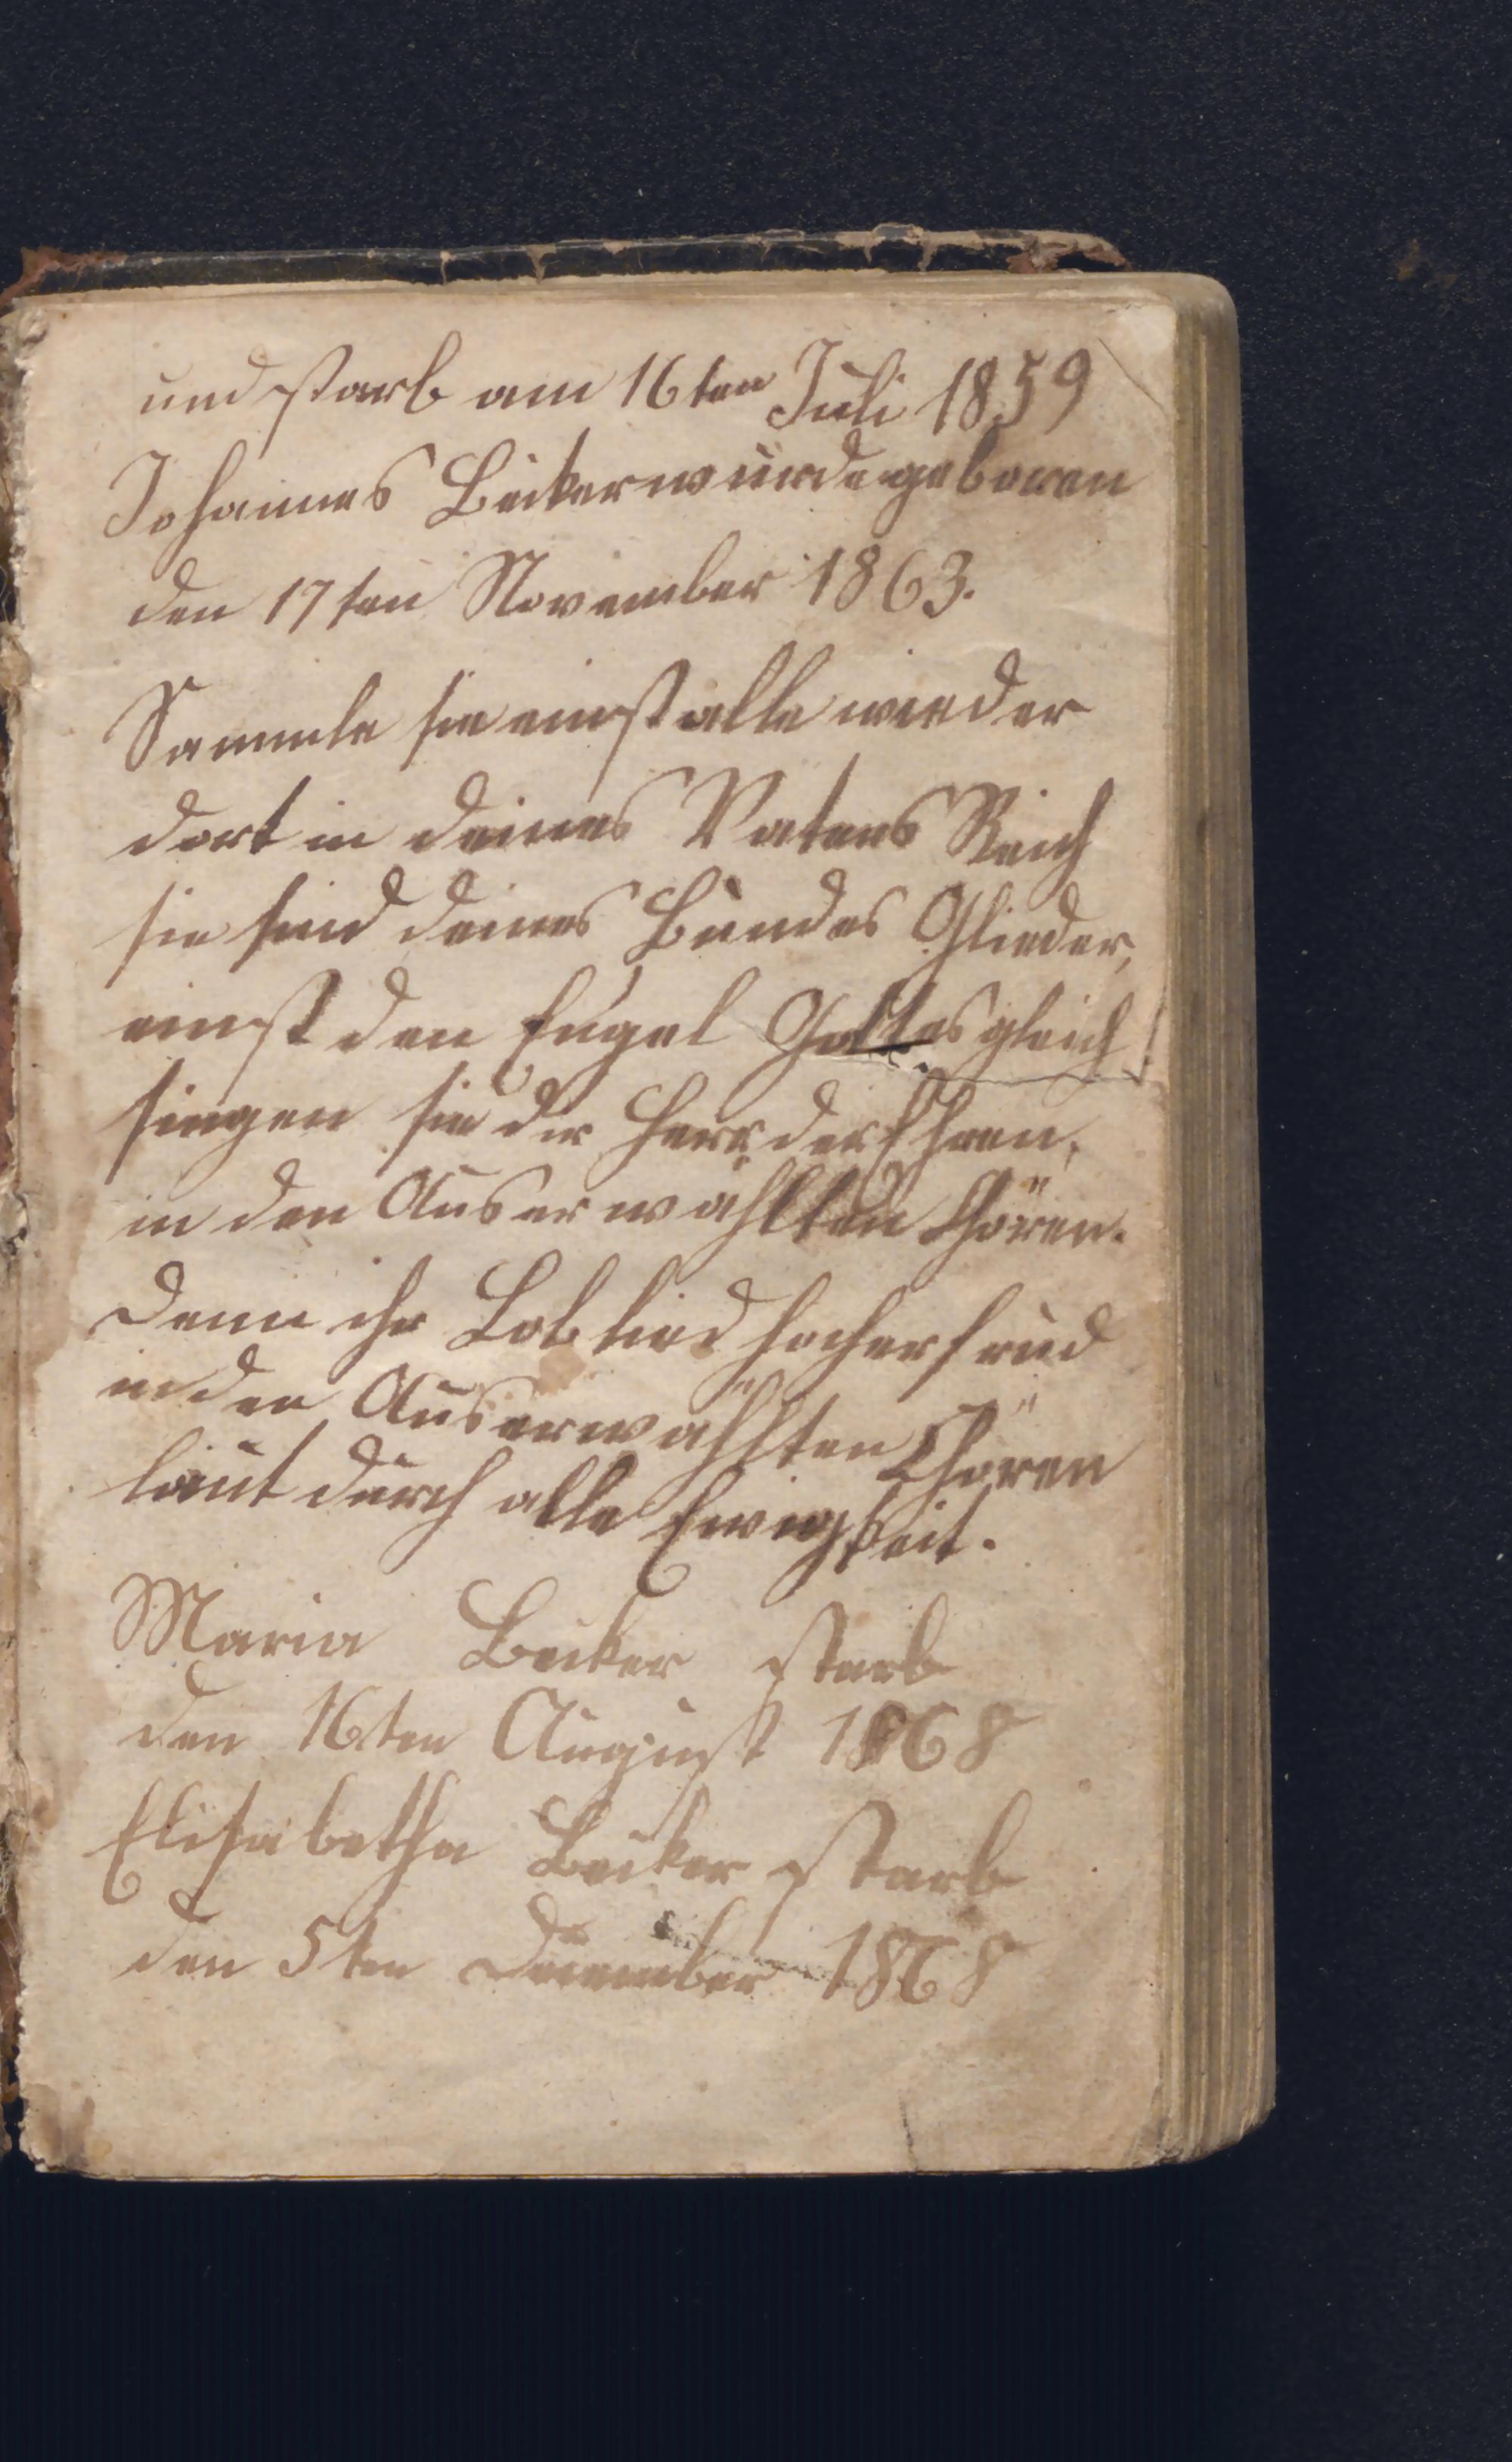 und starb am 16ten Juli 1859
Johannes Becker wurde geboren
den 17ten November 1863.
Sammle sie einst alle wieder
dort in deines Vaters Reich
sie sind deines Bundes Glieder,
einst den Engel Gottes gleich
singen sie dir Herr der Ehren,
in den Auserwählten Chören.
Denn ihr Loblied hocherfreud
in den Auserwählten Chören
laut durch alle Ewigkeit.
Maria Becker starb
den 16ten August 1868
Elisabetha Becker starb
den 5ten December 1868